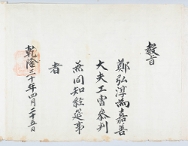 敎旨
鄭弘淳爲嘉善
大夫工曹參判
兼同知經筵事
者
乾隆三十年四月二十五日